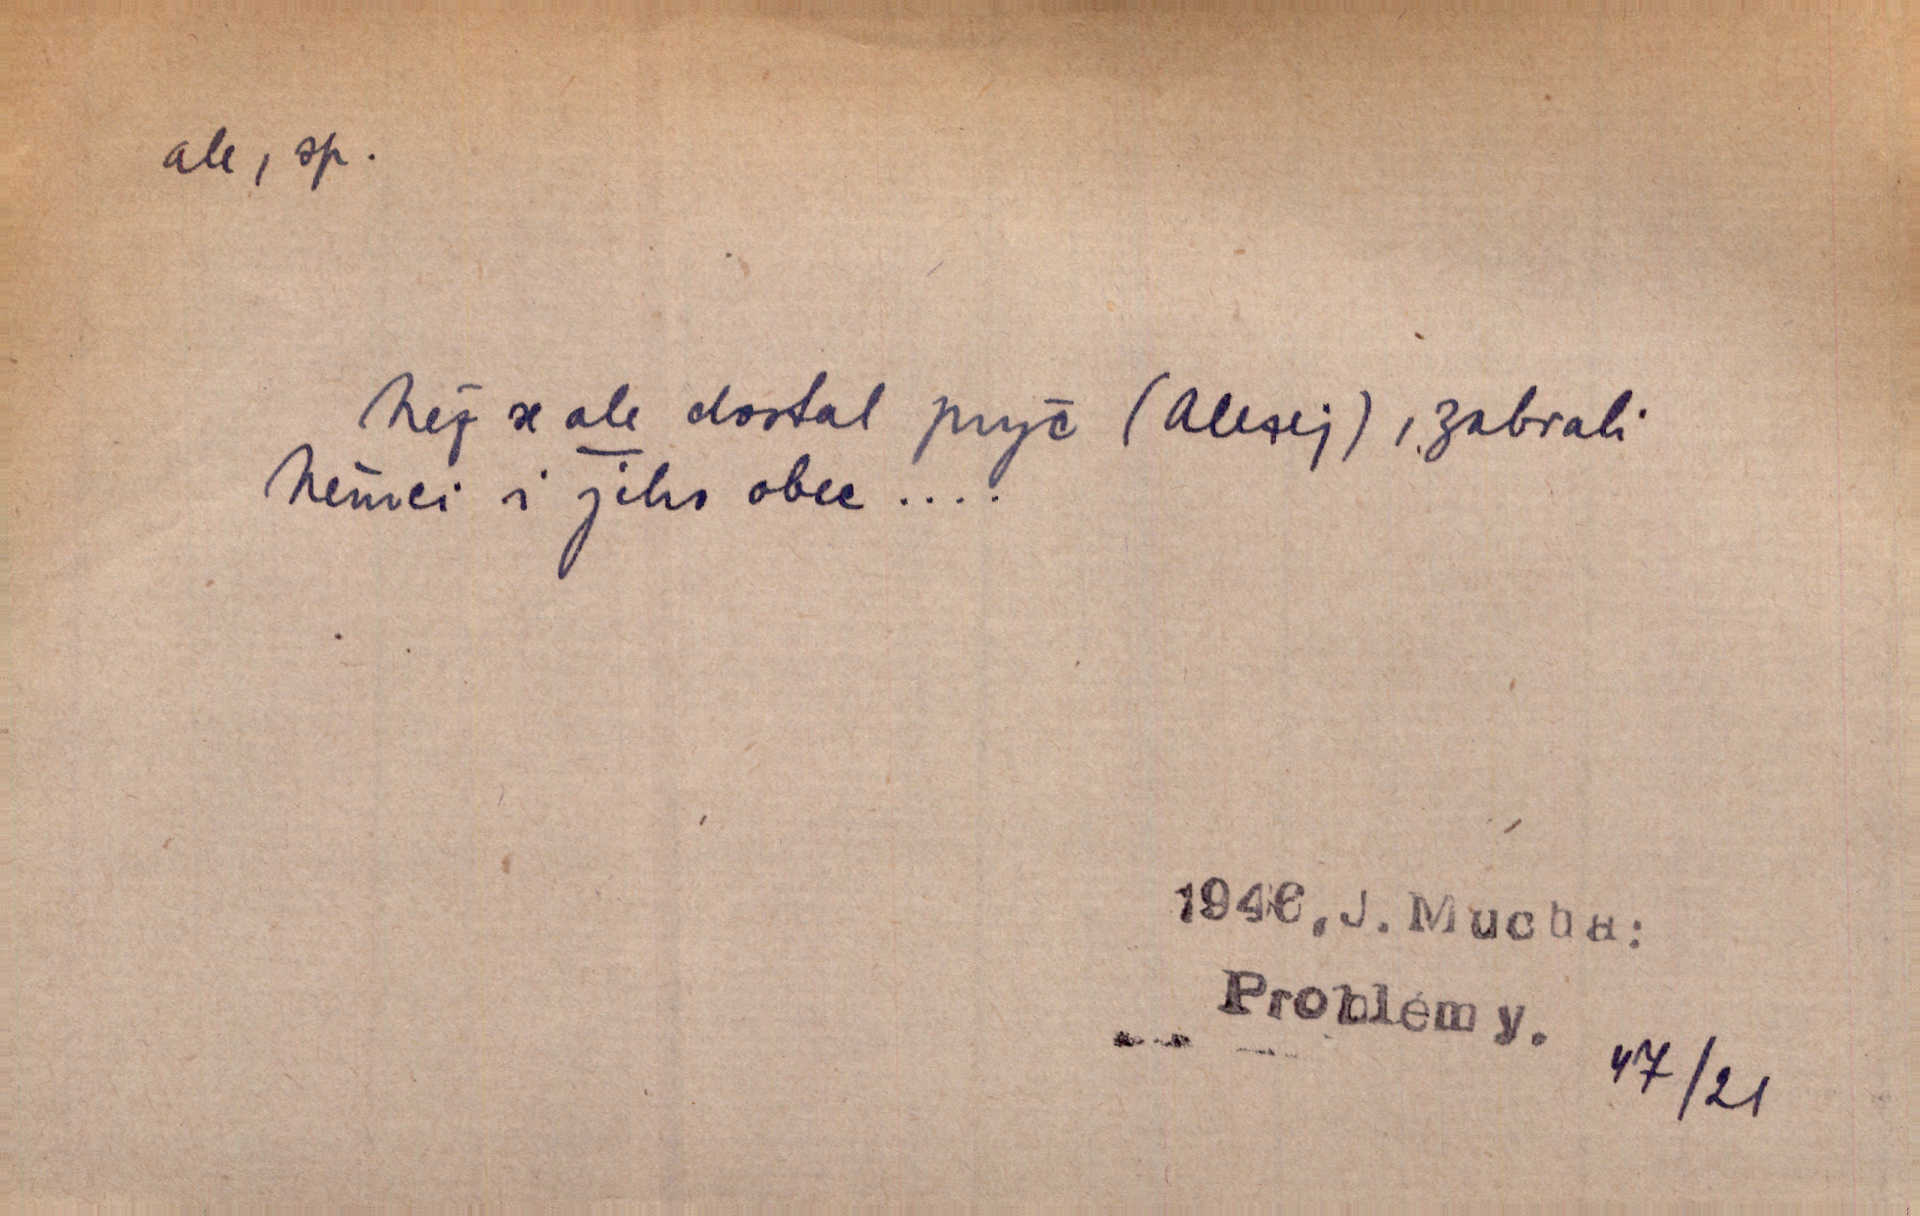 ale, sp.
Než se ale dostal pryč (Alexej), zabrali
Němci i jeho obec ....
1946, J. Mucha:
Problémy.
47/21